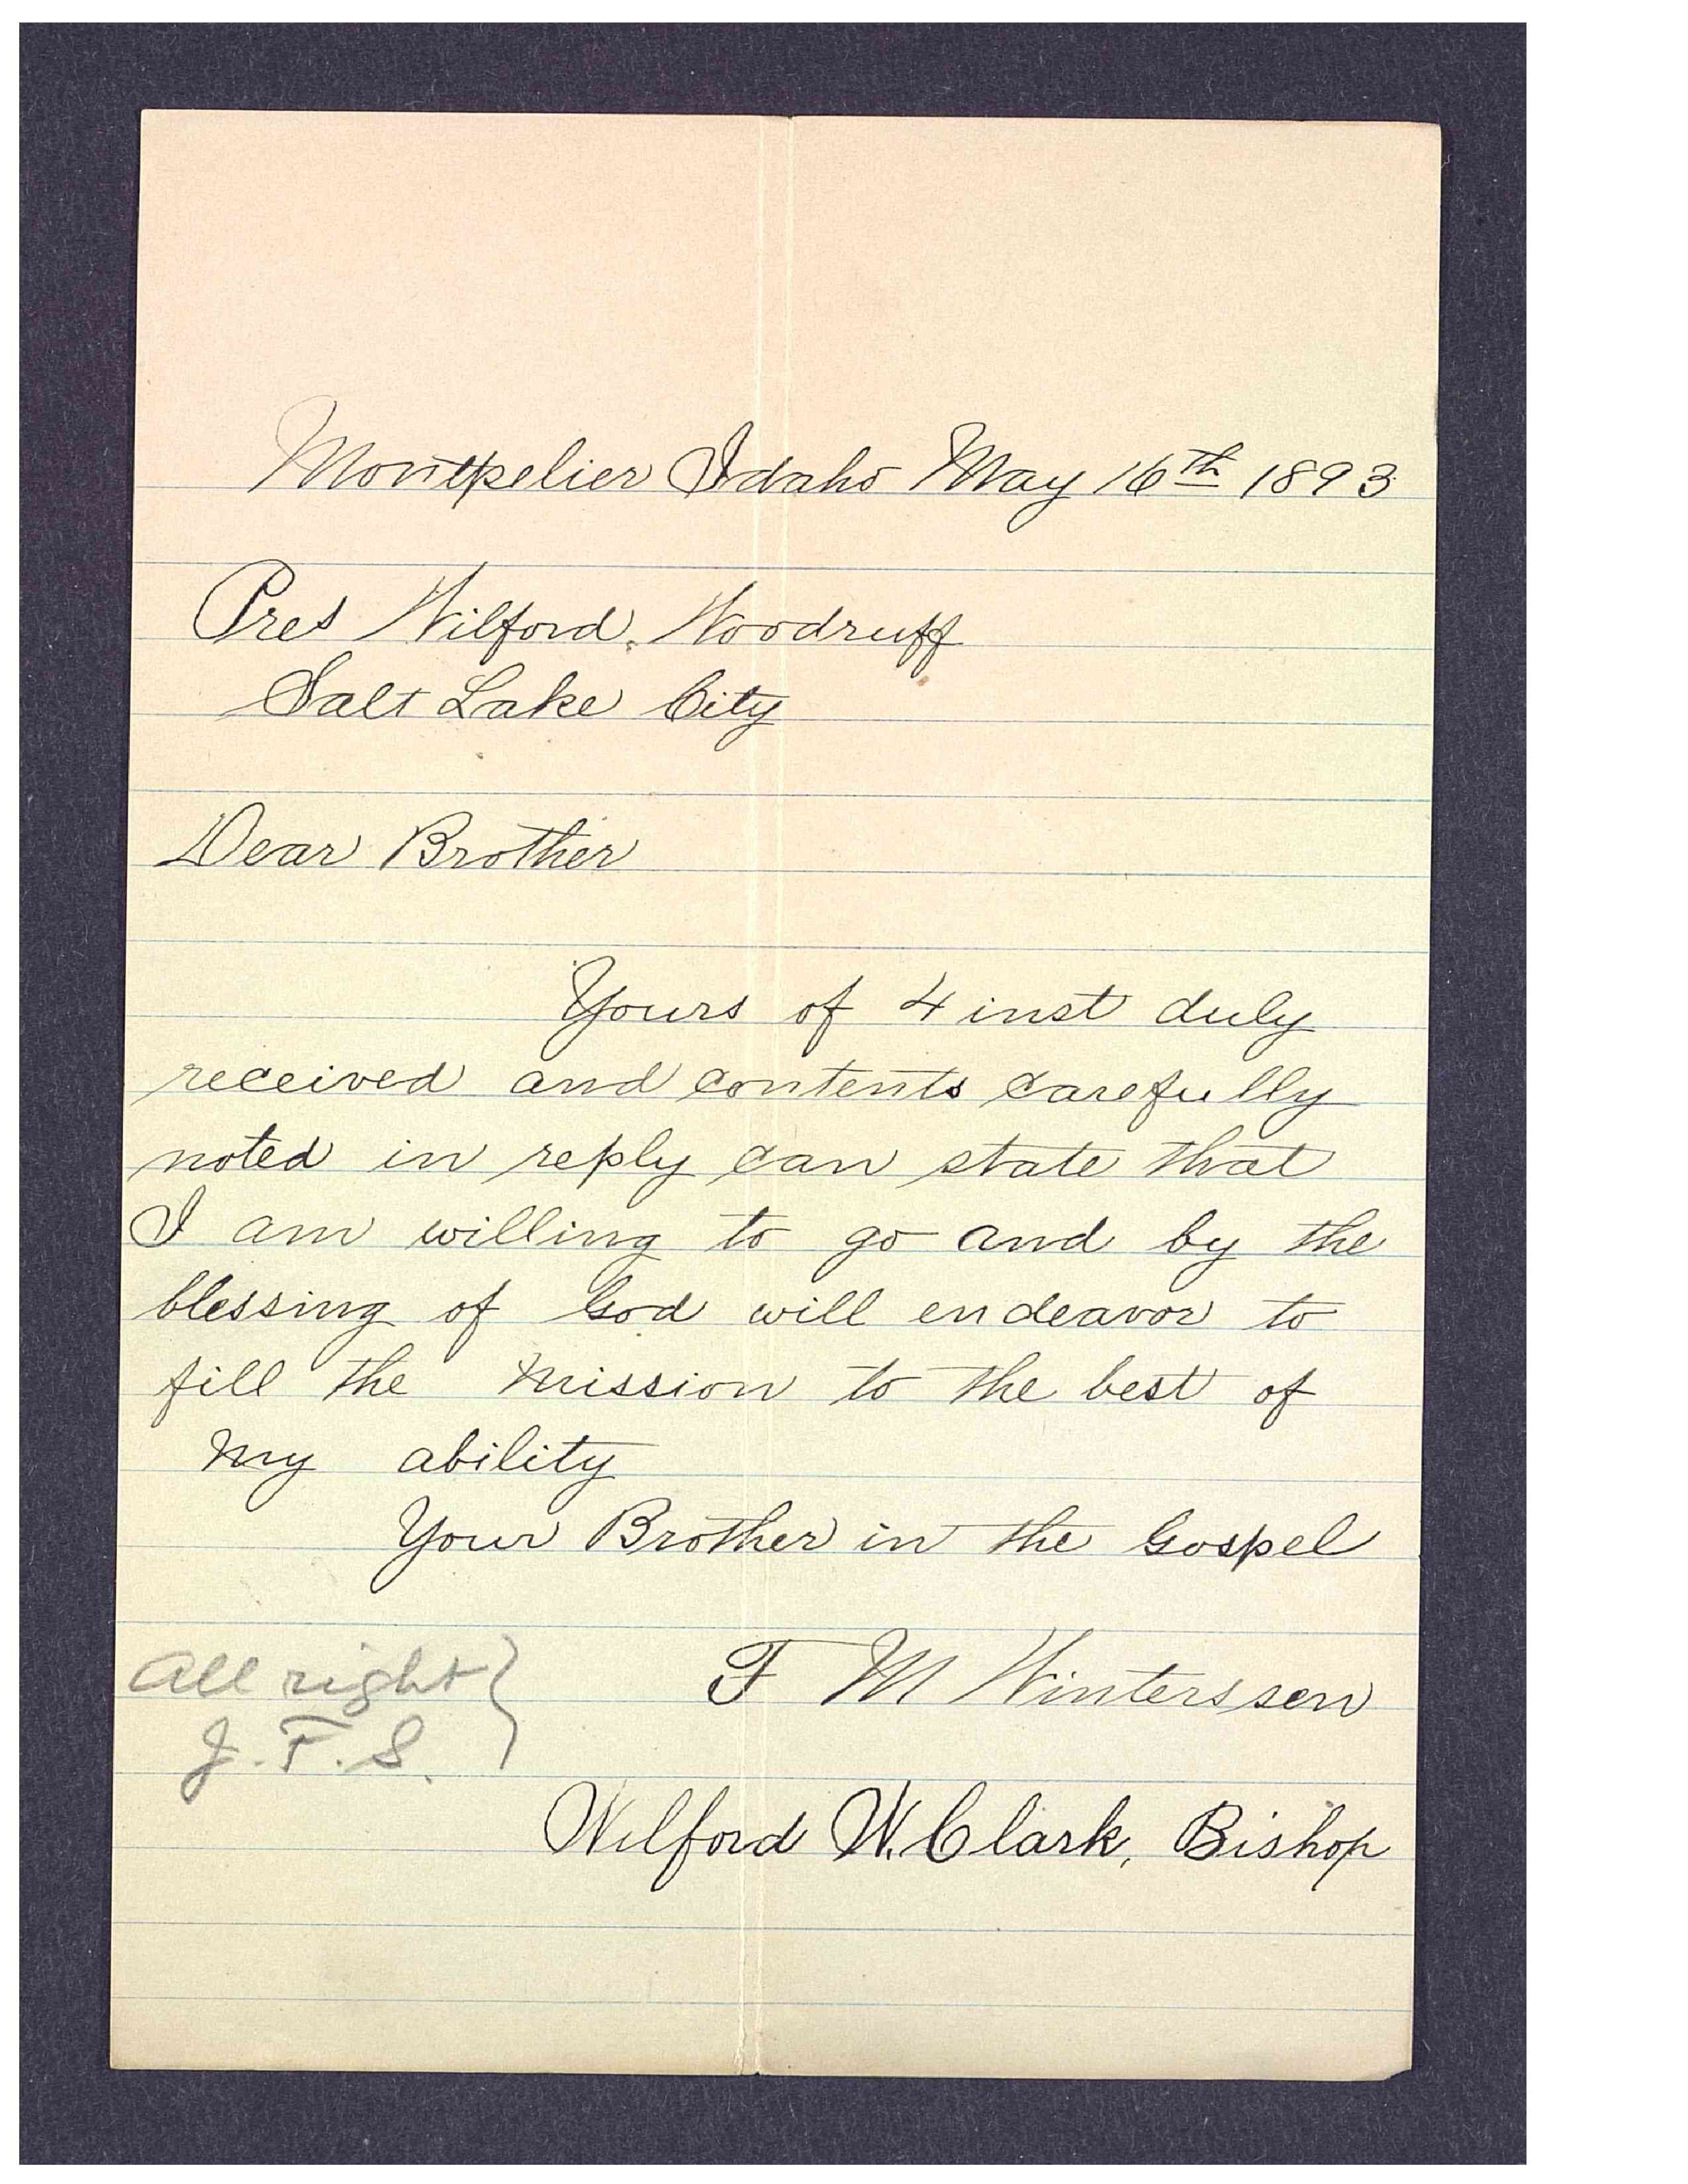 Montpelier Idaho May 16th 1893
Pres Wilford. Woodruff
Salt Lake City
Dear Brother
Yours of 4 inst duly
received and contents carefully
noted in reply can state that
I am willing to go and by the
blessing of God will endeavor to
fill the mission to the best of
my ability
Your Brother in the Gospel
F M Winterssen
All right
J. F. S.
Wilford W. Clark, Bishop